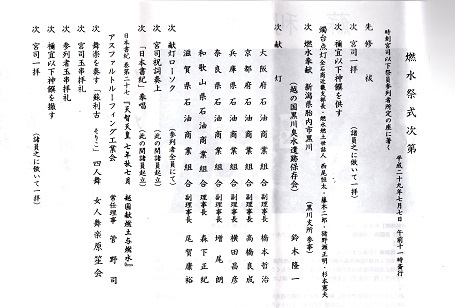 燃水祭式次第
平成二十九年七月七日 午前十一時斎行
時刻宮司以下祭員参列者所定の座に著く
先 修祓
次 宮司一拝 (諸員之に倣いて一拝)
次 禰宜以下神饌を供す
燭台点灯
次 燃水奉献 新潟県胎内市黒川 (黒川支所参事) 鈴木隆一
(越の国黒川臭水遺跡保存会)
次 献灯
大阪府石油商業組合 副理事長 橋本哲治
京都府石油商業組合 副理事長 高橋良成
兵庫県石油商業組合 副理事長 横田昌彦
奈良県石油商業組合 理事長 増尾朗
和歌山県石油商業組合 理事長 森下正紀
滋賀県石油商業組合 副理事長 尾賀康裕
次 献灯ローソク (参列者全員にて)
次 宮司祝詞奏上 (此の間諸員起立)
次 「日本書紀」奉唱 (此の間諸員起立)
日本書紀 巻第二十七 『天智天皇七年秋七月 越国献燃土与燃水』
アスファルトルーフィング工業会 常任理事 菅野司
次 舞楽を奏す「蘇利古 そりこ」四人舞 女人舞楽原笙会
次 宮司玉串拝礼
次 参列者玉串拝礼
次 禰宜以下神饌を撤す
次 宮司一拝 (諸員之に倣いて一拝)